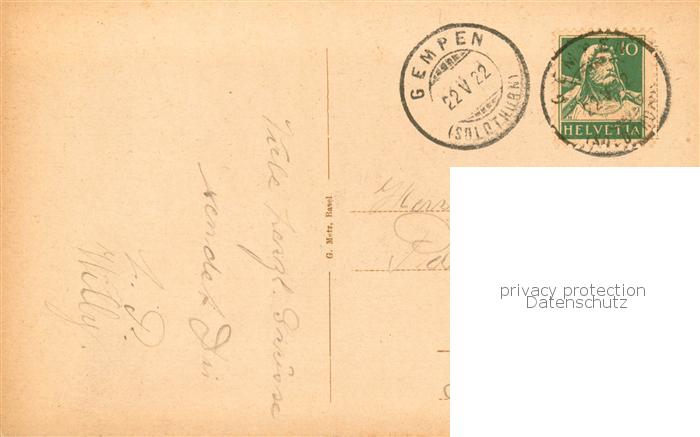 GEMPEN
22 V 22
(SOLOTHURN)
10
HELVETIA
Viele herzl. Grüsse
sendet Dir
Willy.
G. Metz, Basel
Herrn
privacy protection
Datenschutz